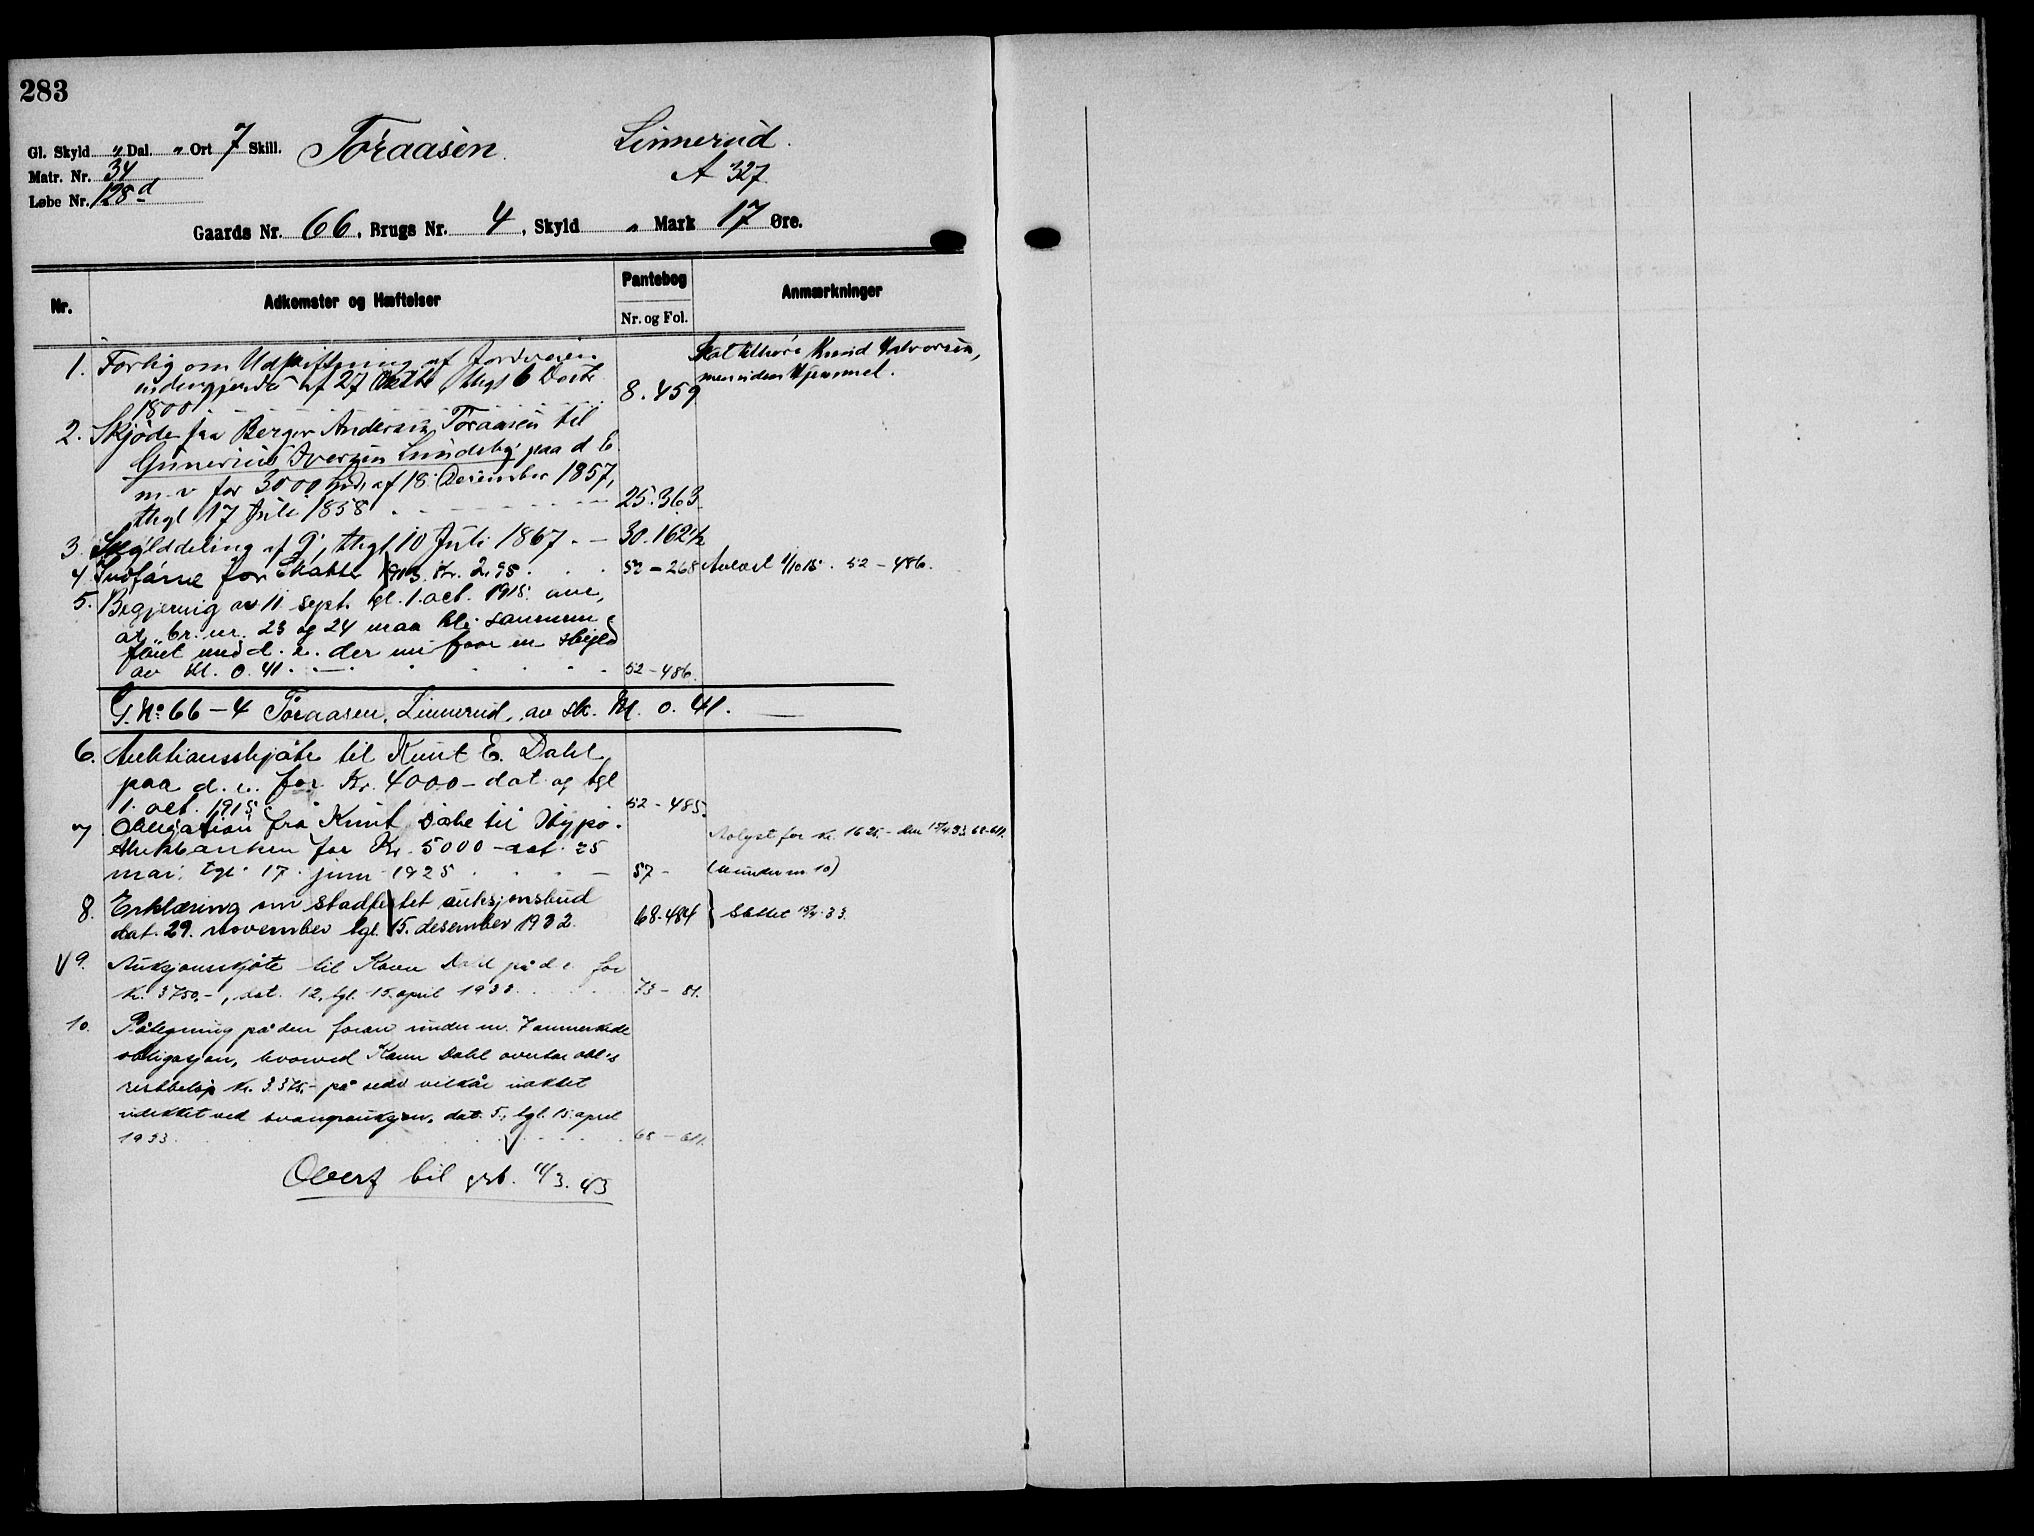 283
Gl. Skyld „ Dal. „ Ort 7 Skill. Toraasen. Linnerud.
Matr. Nr. 34 A 327
Løbe Nr. 128 d
Gaards Nr. 66, Brugs Nr. 4, Skyld „ Mark 17 Øre.
Nr. Adkomster og Hæftelser Pantebog Anmærkninger
Nr. og Fol.
1. Forlig om Udskiftning af Jordveien Skal tilhøre Knud Halvorsen,
af 27 thgl 6 8. 459 men uden Hjemmel.
1800
2. Skjøde fra Berger Andersen Toraasen til
Gunerius Iversen Lundeby paa d. E.
m. v for 3000 af 18 December 1857,
thgl 17 Juli 1858 25. 363
3. Skylddeling af 9', thgl 10 Juli 1867. 30. 162½
4 Indførsel for Skatter 1913. Kr. 2.95. 52 - 268 Avlæst 1/10 15. 52 - 486.
5. Begjering av 11 sept. tgl. 1. oct. 1915. om,
at br. nr. 23 og 24 maa bli sammen-
føiet med d. e. der nu faar en skyld
av M. 0. 41. 52 - 486.
G. No 66 - 4 Toraasen, Linnerud, av sk. M. 0. 41.
6. Auktionsskjøte til Knut E. Dahl
paa d. e. for Kr. 4000 - dat. og tgl
1. oct. 1915. 52 - 485.
7 Obligation fra Knut Dahl til Hypo- Avlyst for kr. 1625.- den 15/4.33. 68-611.
thekbanken for Kr. 5000 - dat. 25
mai, tgl. 17. juni 1925 57 - (se under nr. 10)
8. Erklæring om stadfestet auksjonsbud
dat. 29. november tgl. 15. desember 1932. 68-484 } Slettet 15/4-33.
9. Auksjonsskjøte til Karen Dahl på d. e. for
kr. 3750,-, dat. 12, tgl. 15. april 1933. 73 - 81.
10. Påtegning på den foran under nr. 7 anmerkede
obligasjon, hvorved Karen Dahl overtar obl's
restbeløp kr. 3.375,- på vilkår
ved tvangsauksjon, dat. 5., tgl. 15. april
1933. 68 - 611.
Overf til grb. 11/3. 43